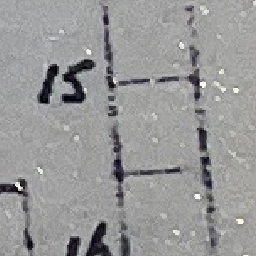 15
16